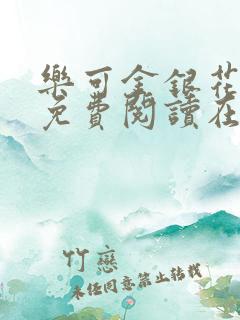 樂可金銀花
免費閱讀在
竹戀
未经同意禁止转载